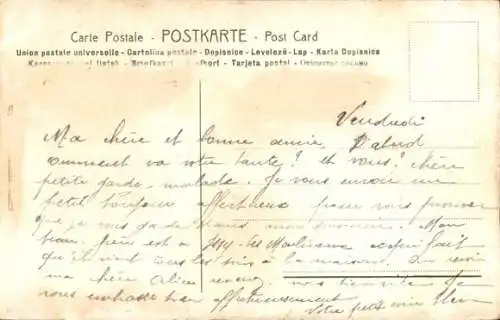 Carte Postale - POSTKARTE - Post Card
Union postale universelle - Cartolina postale - Dopisnice - Levelező-Lap - Karta Dopisnice
listek - Briefkaart - Tarjeta postal
Vendredi
Ma chère et bonne amie. D'abord
comment va votre tante? et vous? chère
petite garde-malade. Je vous envoie un
petit bonjour affectueux pour vous prouver
que je vous garde dans mon souvenir. Mon
beau-père est à Issy-les-Moulineaux
qu'il vient tous les à la maison. Au revoir
ma chère Alice nos Je
vous embrasse bien affectueusement
Votre petite amie